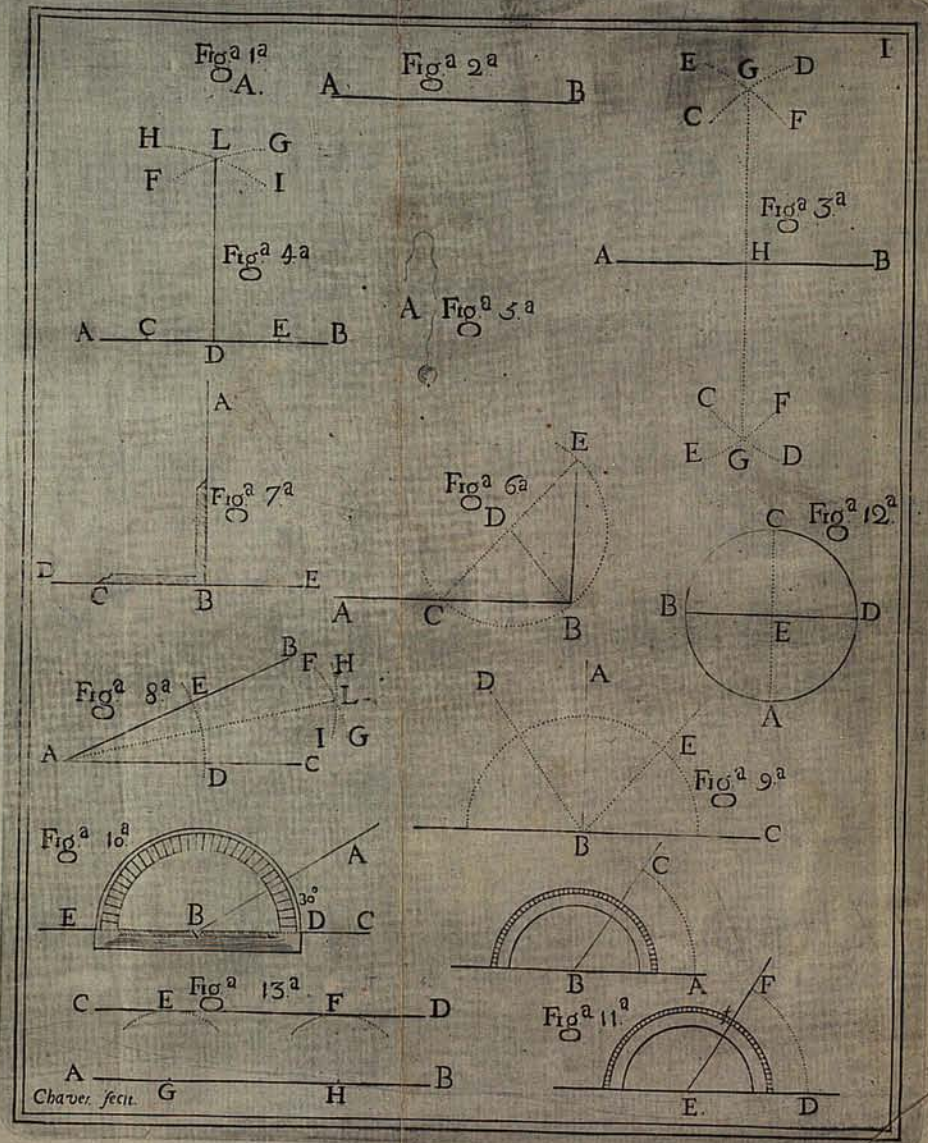 I
Fig.ª 1ª
A.
Fig.ª 2ª
A B
E G D
C F
Fig.ª 3ª
A H B
C F
E G D
H L G
F I
Fig.ª 4ª
A C E B
D
A Fig.ª 5ª
A
Fig.ª 7ª
D E
C B
E
Fig.ª 6ª
D
A C B
C Fig.ª 12ª
B D
E
A
B F H
Fig.ª 8ª E L
A I G
D C
D A
E
Fig.ª 9ª
B C
Fig.ª 10ª
A
30°
E B D C
C
B A
Fig.ª 11ª
F
E. D
C E Fig.ª 13ª F D
A G H B
Chavez fecit.